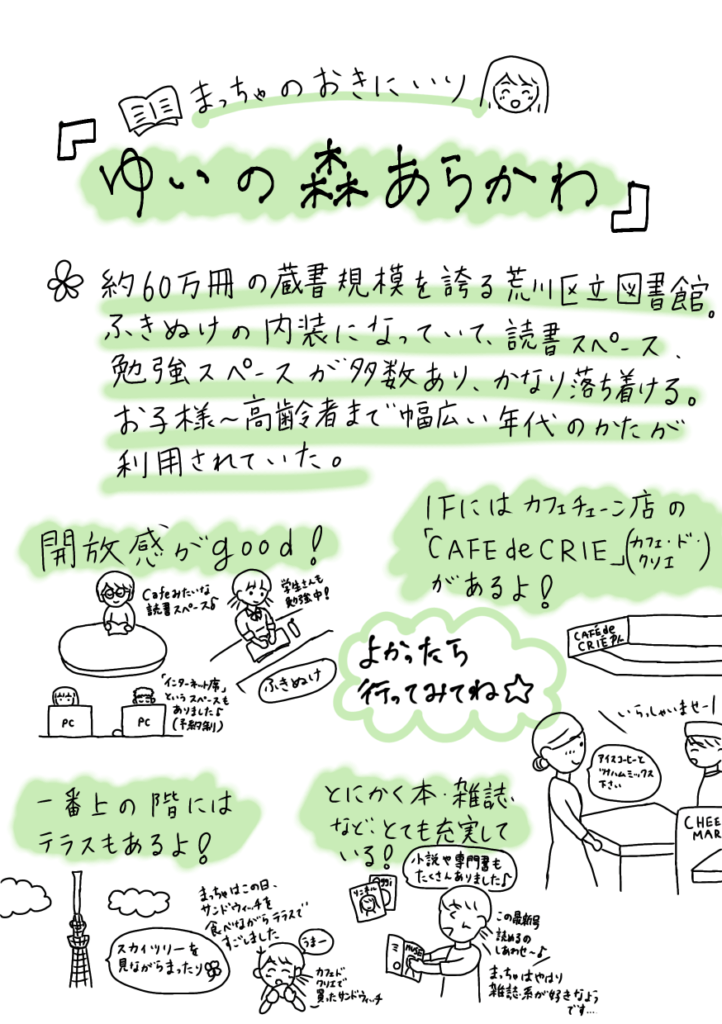 まっちゃのおきにいり
『ゆいの森あらかわ』
約60万冊の蔵書規模を誇る荒川区立図書館。
ふきぬけの内装になっていて、読書スペース、
勉強スペースが多数あり、かなり落ち着ける。
お子様〜高齢者まで幅広い年代のかたが
利用されていた。
開放感がgood!
Cafeみたいな
読書スペース♪
学生さんも
勉強中!
ふきぬけ
「インターネット席」
というスペースも
ありました♪
(予約制)
PC
PC
1Fにはカフェチェーン店の
「CAFE de CRIE」(カフェ・ド・
クリエ)
があるよ!
よかったら
行ってみてね☆
CAFÉ de
CRIE
いらっしゃいませー!
アイスコーヒーと
ツナハムミックス
下さい
CHEE
MAR
一番上の階には
テラスもあるよ!
スカイツリーを
見ながらまったり
まっちゃはこの日、
サンドウィッチを
食べながらテラスで
すごしました
うまー
カフェド
クリエで
買ったサンドウィッチ
とにかく本・雑誌・
など…とても充実して
いる!
小説や専門書も
たくさんありました♪
この最新号
読めるの
しあわせ〜♪
まっちゃはやはり
雑誌系が好きなよう
です…